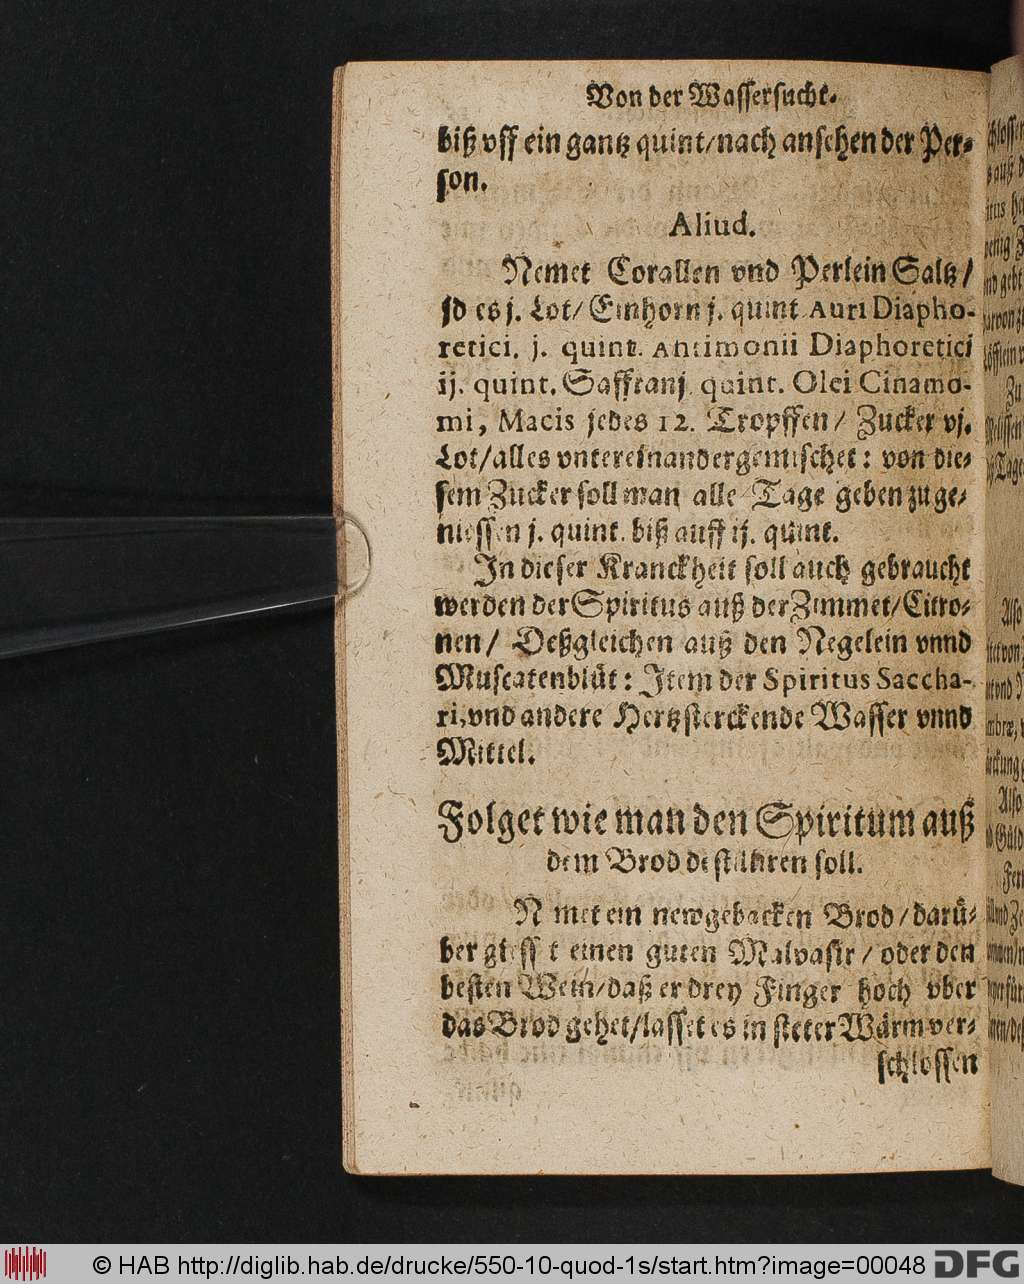 Von der Wassersucht.
biß vff ein gantz quint/nach ansehen der Per-
son.
Aliud.
Nemet Corallen vnd Perlein Saltz/
jdes j. Lot/ Einhorn j. quint Auri Diapho-
retici. j. quint. Antimonii Diaphoretici
ij. quint. Saffran j quint. Olei Cinamo-
mi, Macis jedes 12. Tropffen/ Zucker vj.
Lot/alles vntereinander gemischet: von die-
sem Zucker soll man alle Tage geben zu ge-
niessen j. quint. biß auff ij. quint.
In dieser Kranckheit soll auch gebraucht
werden der Spiritus auß der Zimmet/Citro-
nen/ Deßgleichen auß den Negelein vnnd
Muscatenblüt: Item der Spiritus Saccha-
ri, vnd andere Hertzsterckende Wasser vnnd
Mittel.
Folget wie man den Spiritum auß
dem Brod destilliren soll.
Nemet ein newgebacken Brod/darü-
ber giesset einen guten Malvasir/ oder den
besten Wein/daß er drey Finger hoch vber
das Brod gehet/lasset es in steter Wärm ver-
schlossen
© HAB http://diglib.hab.de/drucke/550-10-quod-1s/start.htm?image=00048 DFG